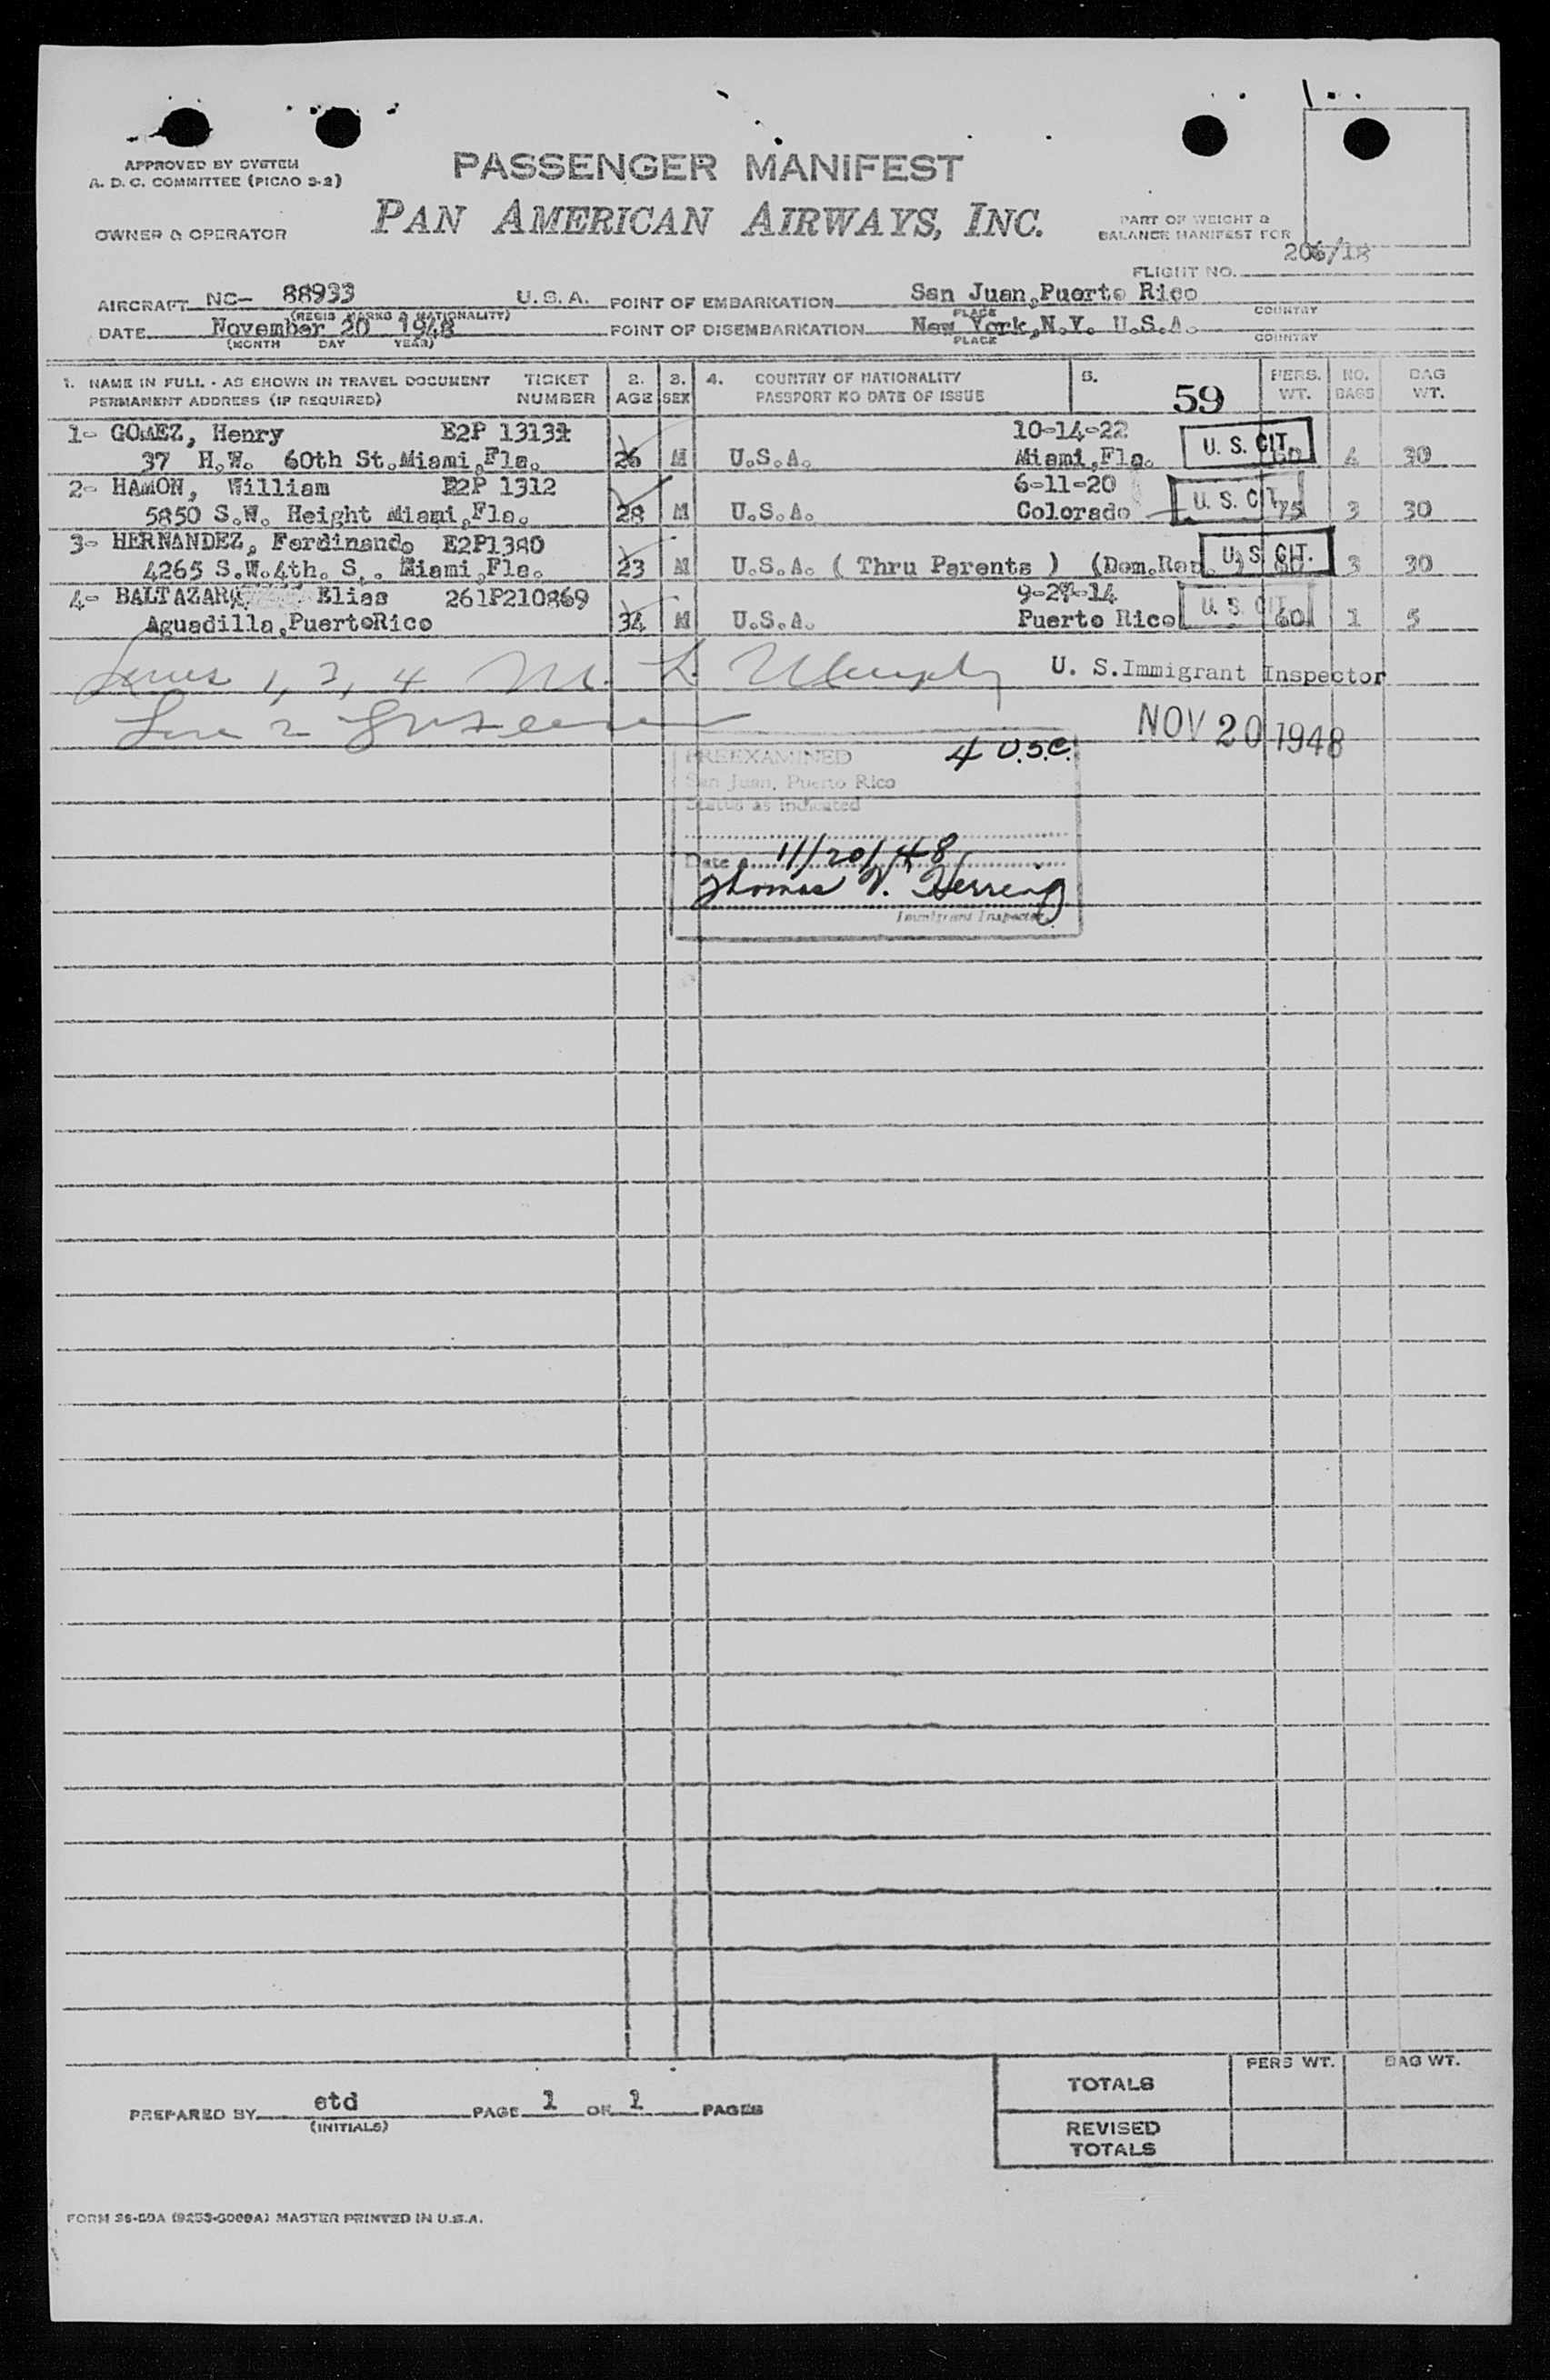 APPROVED BY SYSTEM
A. D. C. COMMITTEE (PICAO S-2)
PASSENGER MANIFEST
PAN AMERICAN AIRWAYS, INC.
OWNER & OPERATOR
PART OF WEIGHT &
BALANCE MANIFEST FOR
FLIGHT NO. 206/18
AIRCRAFT NC- 88933 U. S. A. POINT OF EMBARKATION San Juan,Puerto Rico
(REGIS MARKS & NATIONALITY) PLACE COUNTRY
DATE November 20 1948 POINT OF DISEMBARKATION New York,N.Y. U.S.A.
(MONTH DAY YEAR) PLACE COUNTRY
1. NAME IN FULL - AS SHOWN IN TRAVEL DOCUMENT TICKET 2. 3. 4. COUNTRY OF NATIONALITY 5. 59 PERS. NO. BAG
PERMANENT ADDRESS (IF REQUIRED) NUMBER AGE SEX PASSPORT NO DATE OF ISSUE WT. BAGS WT.
1- GOMEZ, Henry E2P 1313 10-14-22
37 H.W. 60th St.Miami,Fla. 26 M U.S.A. Miami,Fla. U. S. CIT. 4 30
2- HAMON, William E2P 1312 6-11-20
5850 S.W. Height Miami,Fla. 28 M U.S.A. Colorado U. S. CIT 75 3 30
3- HERNANDEZ, Ferdinando E2P1380
4265 S.W.4th. S,. Miami,Fla. 23 M U.S.A. ( Thru Parents ) (Dom.Rep. ) U. S. CIT. 3 30
4- BALTAZAR Elias 261P210869 9-27-14
Aguadilla,PuertoRico 34 M U.S.A. Puerto Rico U. S. CIT 60 1 5
Lines 1, 3, 4 M. L. Murphy U. S.Immigrant Inspector
Line 2
NOV 20 1948
PREEXAMINED 4 U.S.C.
San Juan, Puerto Rico
Status as indicated
Date 11/20/48
Thomas V. Herring
Immigrant Inspector
TOTALS PERS WT. BAG WT.
PREPARED BY etd PAGE 1 OF 1 PAGES
(INITIALS)
REVISED
TOTALS
MASTER PRINTED IN U.S.A.